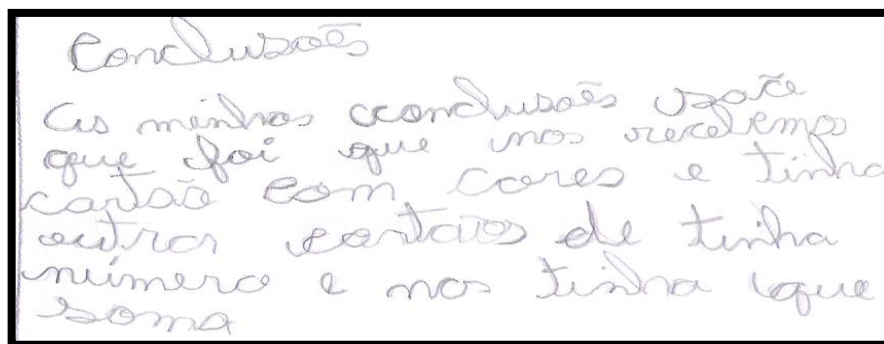 Conclusoẽs
As minhas conclusoẽs
que foi que nos recebemos
cartão com cores e tinha
outros cartaios de tinha
número e nos tinha que
soma